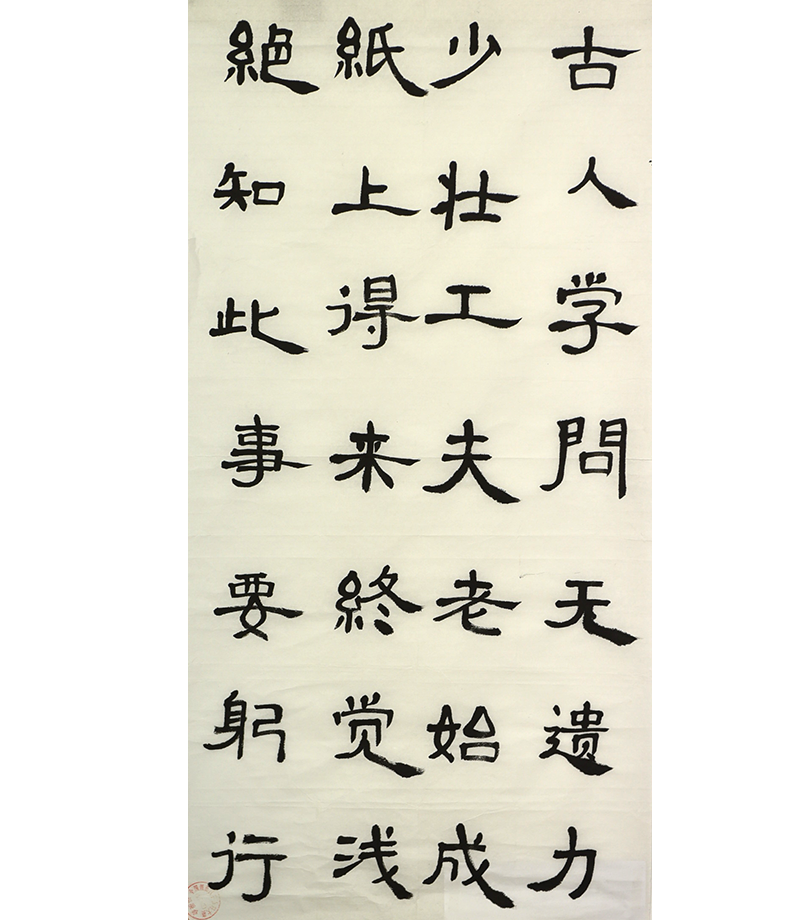 古人学問无遗力
少壮工夫老始成
紙上得来終觉浅
絕知此事要躬行